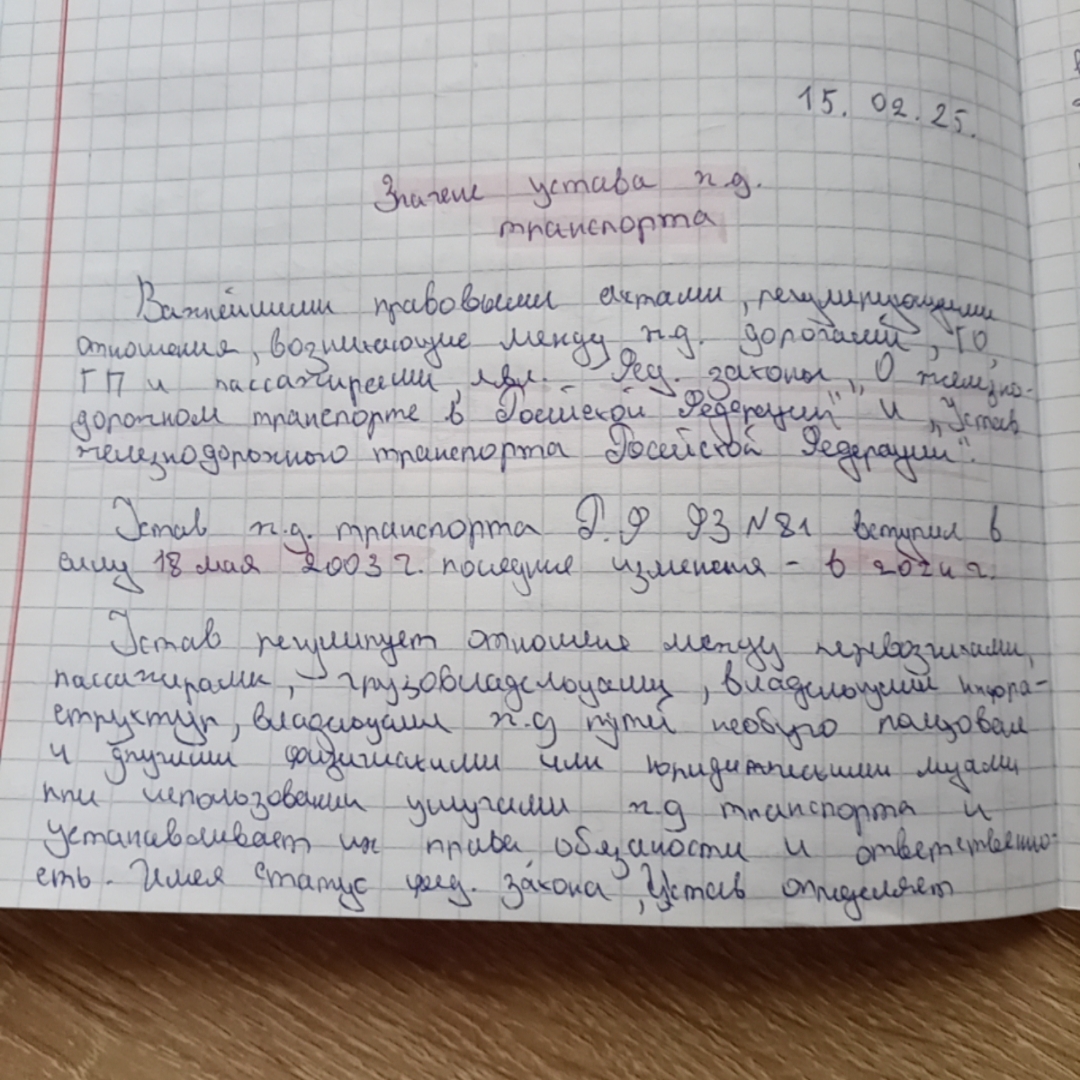 15. 02. 25.
Значение устава ж.д.
транспорта
Важнейшими правовыми актами, регулирующими
отношения, возникающие между ж.д. дорогами, ГО,
ГП и пассажирами, явл. Фед. законы „О железно-
дорожном транспорте в Российской Федерации" и „Устав
железнодорожного транспорта Российской Федерации".
Устав ж.д. транспорта Р.Ф ФЗ №81 вступил в
силу 18 мая 2003 г. последние изменения - в 2024 г.
Устав регулирует отношение между перевозчиками,
пассажирами, грузовладельцами, владельцами инфра-
структур, владельцами ж.д путей необщего пользован
и другими физическими или юридическими лицами
при использовании услугами ж.д транспорта и
устанавливает их права, обязаности и ответственно-
сть. Имея статус фед. закона, Устав определяет